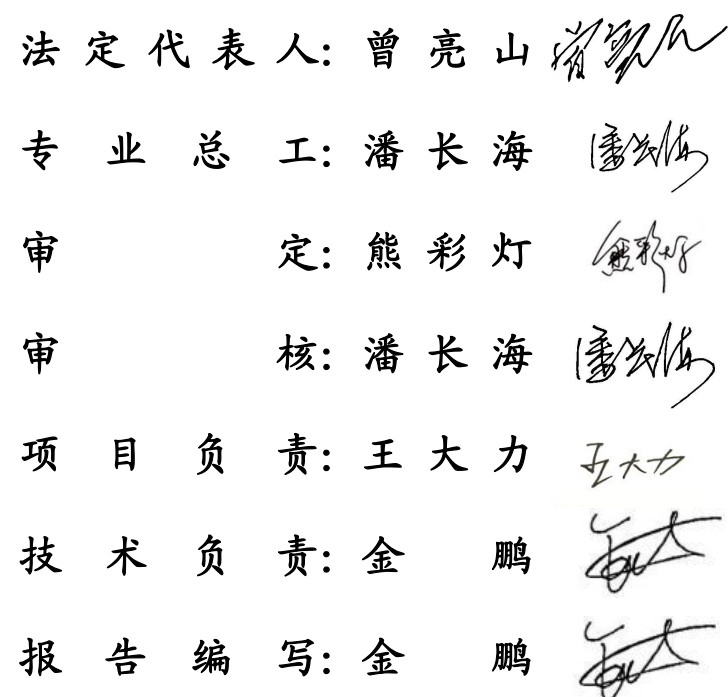 法定代表人：曾亮山 曾亮山
专业总工：潘长海 潘长海
审定：熊彩灯 熊彩灯
审核：潘长海 潘长海
项目负责：王大力 王大力
技术负责：金鹏
报告编写：金鹏